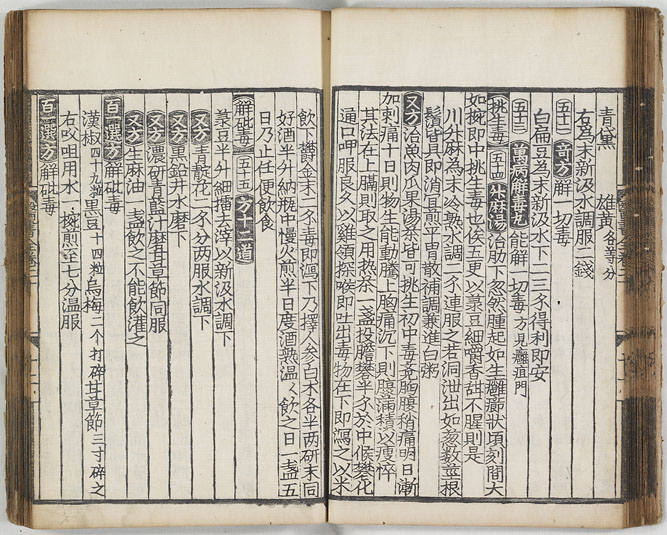 青黛 雄黄各等分
右為末新汲水調服二錢
五十二 奇方解一切毒
白扁豆為末新汲水下二三錢得利即安
五十三 萬病解毒丸能解一切毒方見癰疽門
挑生毒 五十四 升麻湯治肋下忽然腫起如生癰癤狀頃刻間大
如椀即中挑生毒也俟五更以菉豆細嚼香甜不腥則是
川升麻為末冷熟水調二錢連服之若洞泄出如葱數莖根
鬚皆具即消宜煎平胃散補調兼進白粥
又方治魚肉瓜果湯茶皆可挑生初中毒覺胸腹稍痛明日漸
加刺痛十日則物生能動騰上胸痛沉下則腹痛積以瘦悴
其法在上膈則取之用熱茶一盞投膽礬半錢於中候礬化
通口呷服良久以雞翎探喉即吐出毒物在下即瀉之以米
飲下欝金末二錢毒即瀉下乃擇人參白朮各半兩研末同
好酒半升納瓶中慢火煎半日度酒熟溫溫飲之日一盞五
日乃止任便飲食
解砒毒 五十五 方十二道
菉豆半升細擂去滓以新汲水調下
又方青靛花二錢分兩服水調下
又方黑鉛井水磨下
又方濃研青藍汁磨甘草節同服
又方生麻油一盞飲之不能飲灌之
百一選方解砒毒
漢椒四十九粒黑豆十四粒烏梅二个打碎甘草節三寸碎之
右㕮咀用水一椀煎至七分溫服
百一選方解砒毒